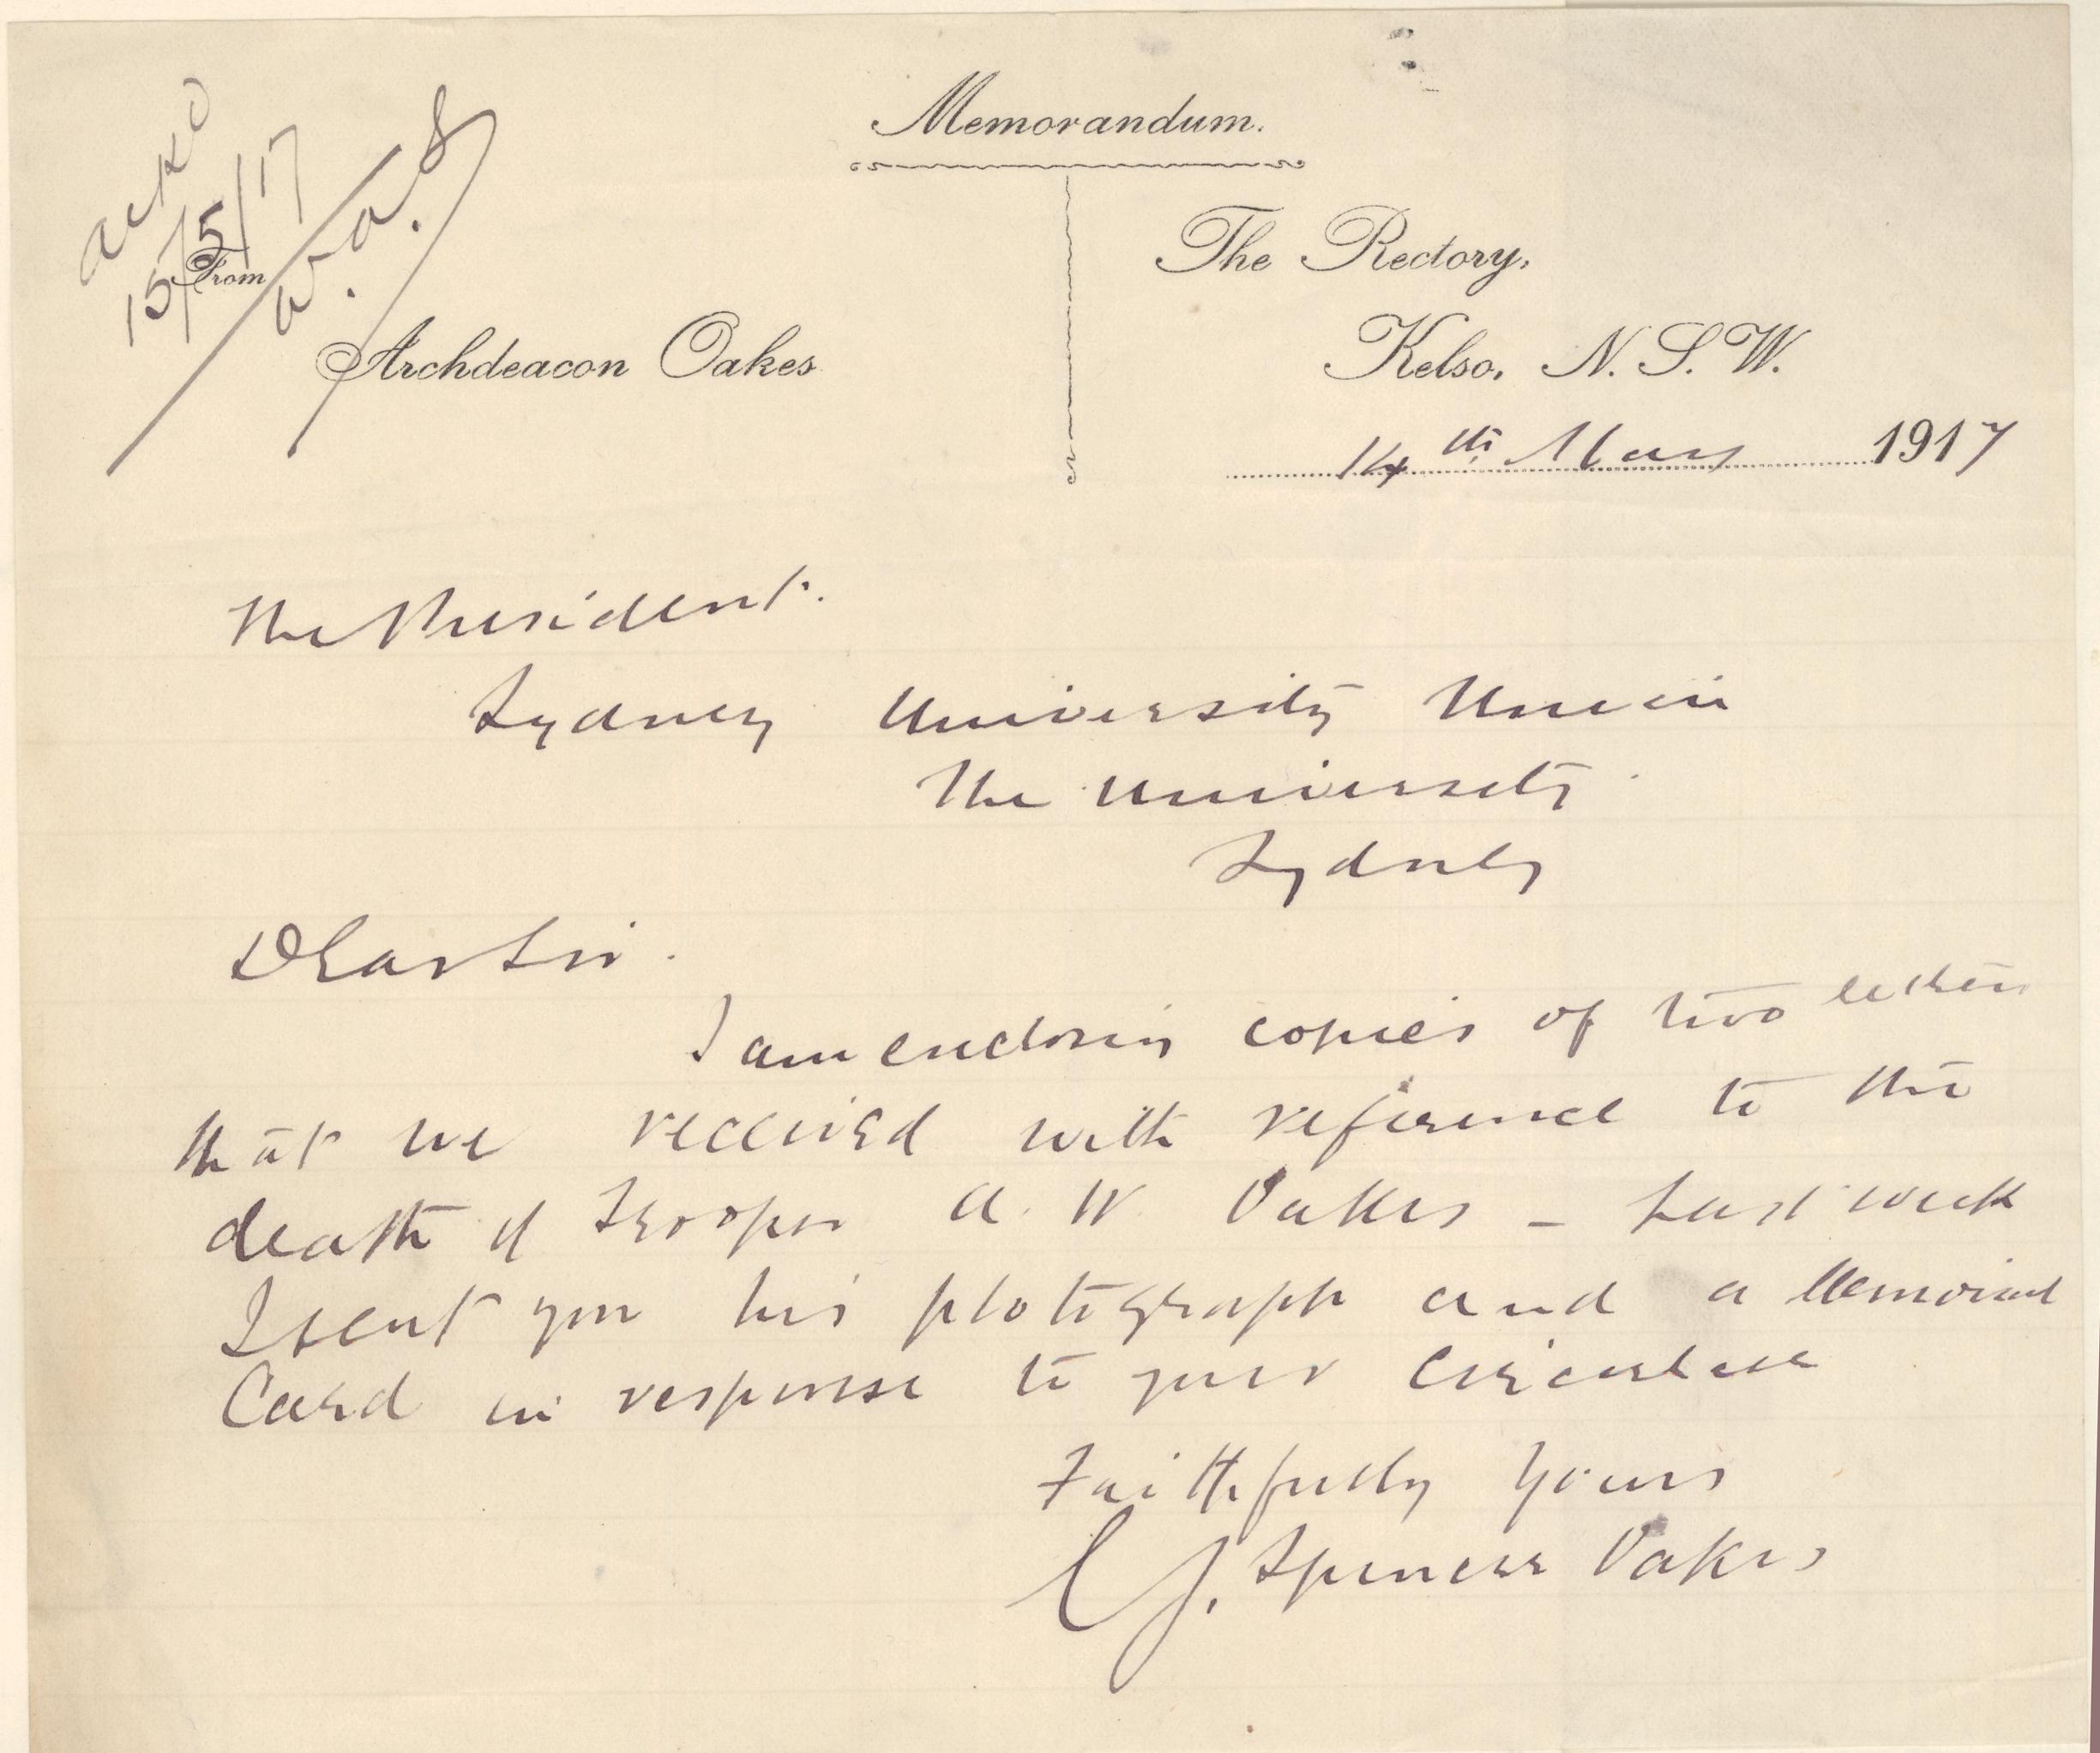 Memorandum.
ackd
15/5/17
W.A.S
From
Archdeacon Oakes
The Rectory,
Kelso, N. S. W.
14th May 1917
The President.
Sydney University Union
The University.
Sydney
Dear Sir.
I am enclosing copies of two letters
that we received with reference to the
death of Trooper A. W. Oakes – Last week
I sent you his photograph and a Memorial
Card in response to your Circular
Faithfully Yours
Spencer Oakes